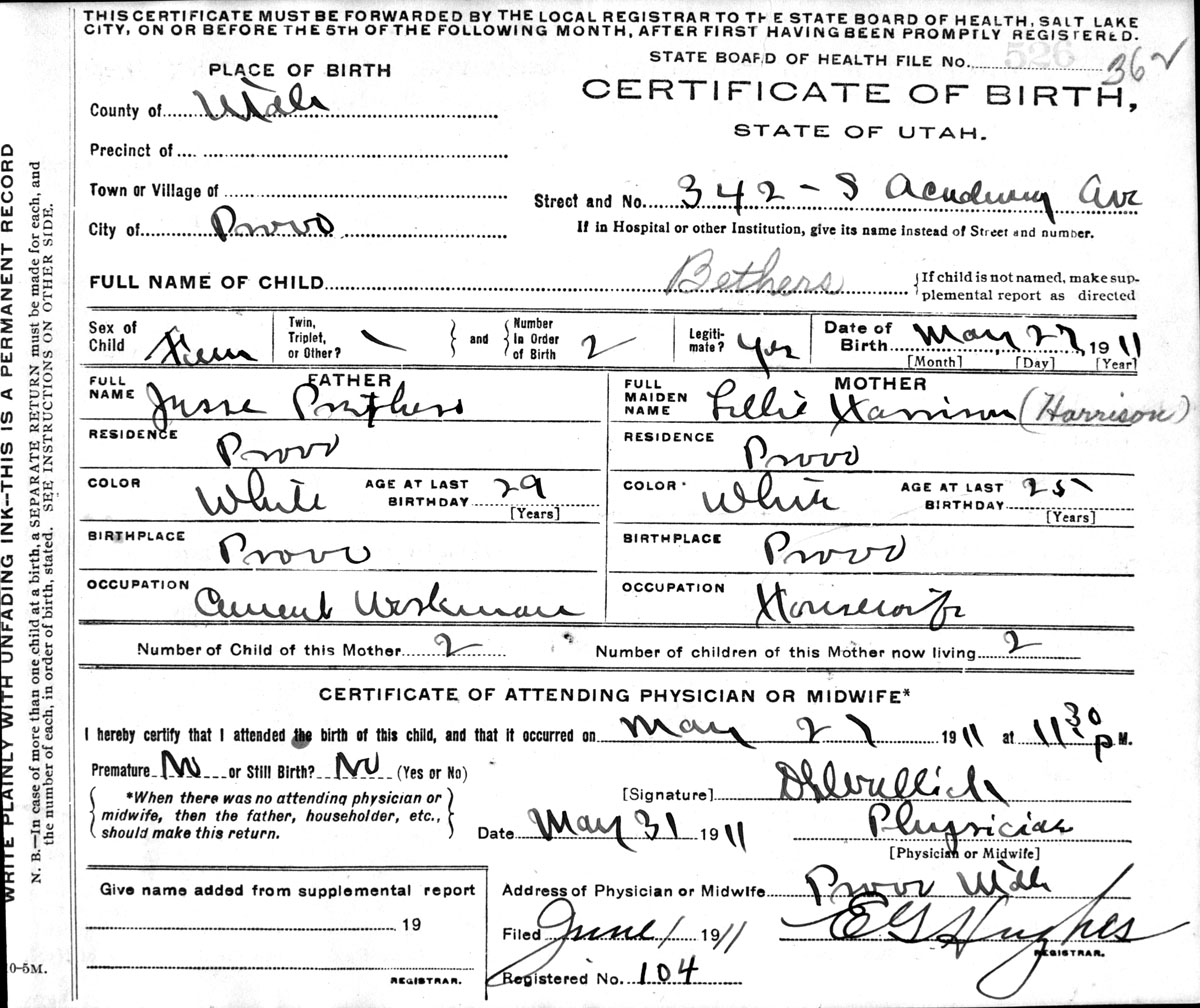 THIS CERTIFICATE MUST BE FORWARDED BY THE LOCAL REGISTRAR TO THE STATE BOARD OF HEALTH, SALT LAKE
CITY, ON OR BEFORE THE 5TH OF THE FOLLOWING MONTH, AFTER FIRST HAVING BEEN PROMPTLY REGISTERED.
STATE BOARD OF HEALTH FILE No. 526 362
PLACE OF BIRTH
CERTIFICATE OF BIRTH,
County of Utah
STATE OF UTAH.
Precinct of
Town or Village of
Street and No. 342 - S Academy Ave
City of Provo
If in Hospital or other Institution, give its name instead of Street and number.
FULL NAME OF CHILD Bethers
{If child is not named, make sup-
plemental report as directed
Sex of Child Fem
Twin, Triplet, or Other? \ } and { Number In Order of Birth 2
Legiti-mate? Yes
Date of Birth May 27, 1911
[Month] [Day] [Year]
FATHER
FULL NAME Jesse
RESIDENCE Provo
COLOR White AGE AT LAST BIRTHDAY 29
[Years]
BIRTHPLACE Provo
OCCUPATION Cement Workman
MOTHER
FULL MAIDEN NAME Lillie Harrison (Harrison)
RESIDENCE Provo
COLOR White AGE AT LAST BIRTHDAY 25
[Years]
BIRTHPLACE Provo
OCCUPATION Housewife
Number of Child of this Mother 2 Number of children of this Mother now living 2
CERTIFICATE OF ATTENDING PHYSICIAN OR MIDWIFE*
I hereby certify that I attended the birth of this child, and that it occurred on May 27 1911 at 11 30 P M.
Premature No or Still Birth? No (Yes or No)
{ *When there was no attending physician or
midwife, then the father, householder, etc.,
should make this return. }
[Signature]
Date May 31 1911 Physician
[Physician or Midwife]
Give name added from supplemental report
19
REGISTRAR.
Address of Physician or Midwife Provo Utah
Filed June 1 1911 E G Hughes
REGISTRAR.
Registered No. 104
WRITE PLAINLY WITH UNFADING INK--THIS IS A PERMANENT RECORD
N. B.—In case of more than one child at a birth, a SEPARATE RETURN must be made for each, and
the number of each, in order of birth, stated. SEE INSTRUCTIONS ON OTHER SIDE.
0-5M.